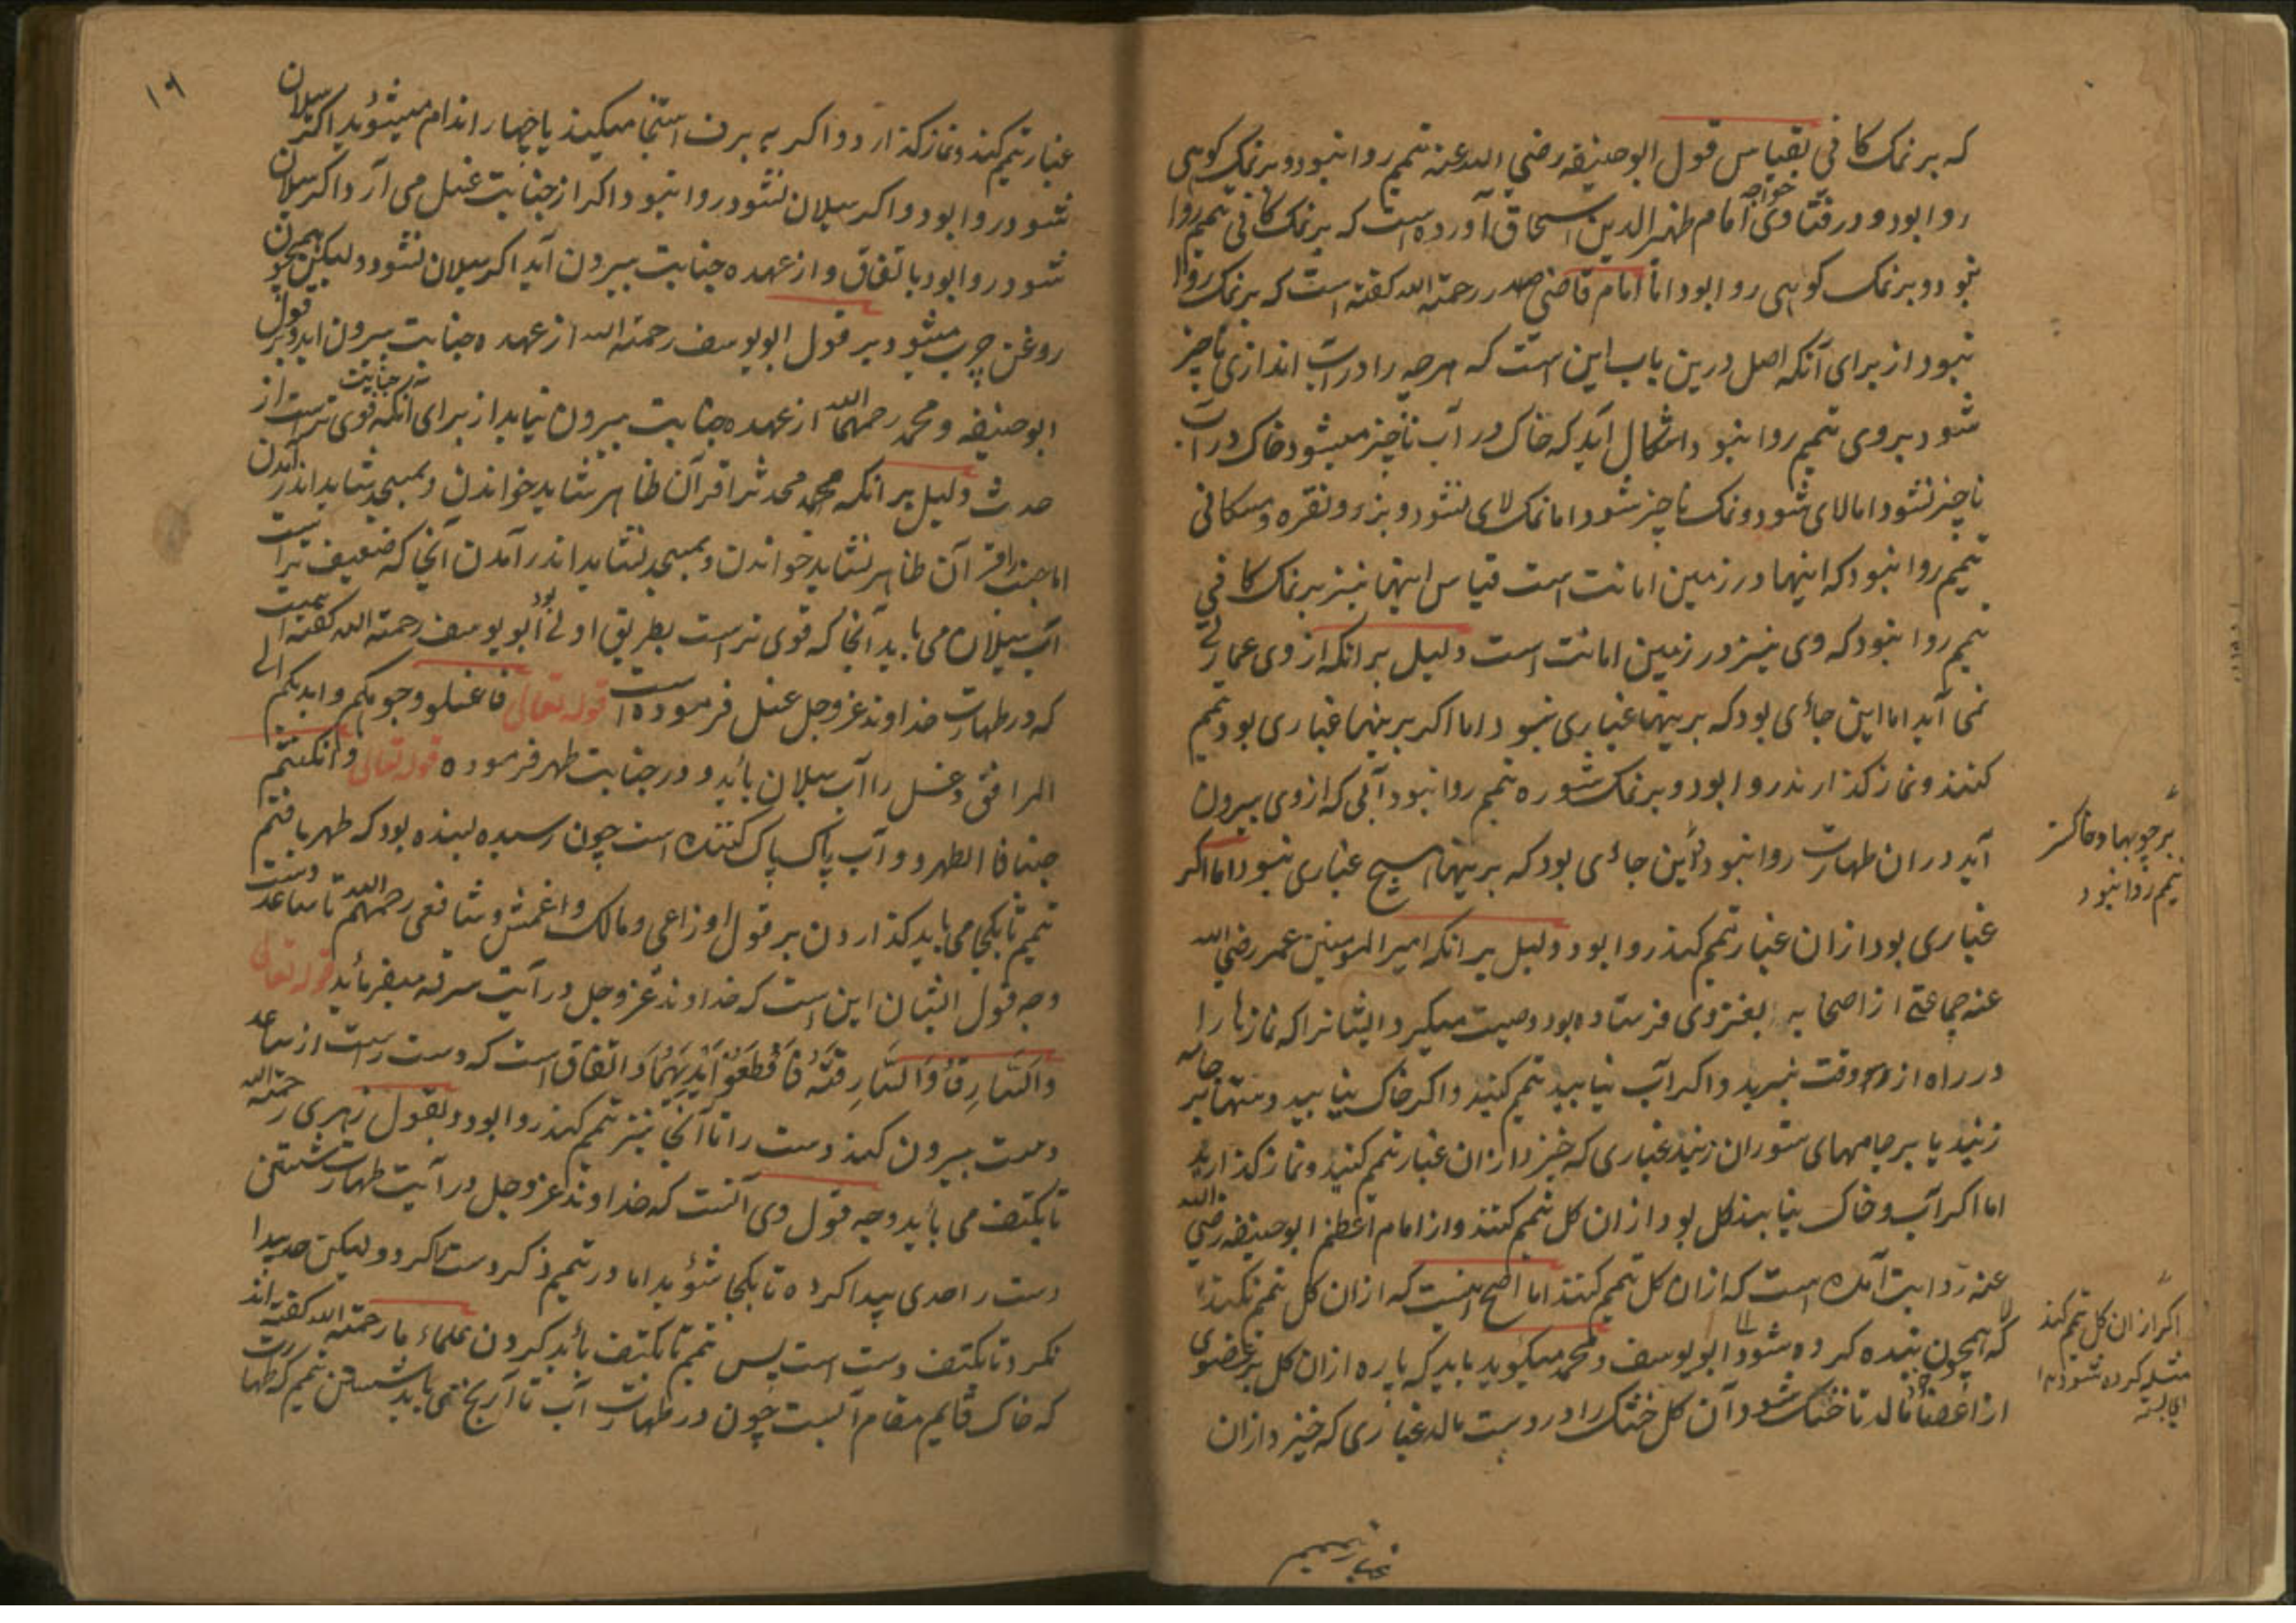 که بر نمک کانی بقیاس قول ابوحنیفه رضی الله عنه تیمم روا نبود و بر نمک کوهی
روا بود و در فتاوی خواجه امام ظهیرالدین اسحاق آورده است که بر نمک کانی تیمم روا
نبود و بر نمک کوهی روا بود اما امام قاضی صدر رحمته الله کفته است که بر نمک روا
نبود از برای آنکه اصل درین باب این است که هرچه را در آب اندازی ناچیز
شود بروی تیمم روا نبود و اشکال آید که خاک در آب ناچیز میشود خاک در آب
ناچیز نشود اما لای شود و نمک ناچیز شود اما نمک لای نشود و بزر و نقره و مس کانی
تیمم روا نبود که اینها در زمین امانت است قیاس اینها نیز بر نمک کانی
تیمم روا نبود که وی نیز در زمین امانت است دلیل بر آنکه از وی عمارتی
نمی آید اما این جائی بود که برینها غباری نبود اما اکر برینها غباری بود تیمم
کنند و نماز کذارند روا بود و بر نمک شوره تیمم روا نبود آبی که از وی بیرون
آید در آن طهارت روا نبود و این جائی بود که برینها هیچ غباری نبود اما اکر
غباری بود از ان غبار تیمم کند روا بود دلیل بر آنکه امیر المومنین عمر رضی الله
عنه جماعتی از اصحابه بغزوی فرستاده بود وصیت میکرد ایشانرا که نمازها را
در راه از وقت نبرید و اکر آب نیابید تیمم کنید و اکر خاک نیابید دستها بر جامه
زنید یا بر جامهای ستوران زنید غباری که خیزد از ان غبار تیمم کنید و نماز کذارید
اما اکر آب و خاک نیابند کل بود از ان کل تیمم کنند و از امام اعظم ابوحنیفه رضی الله
عنه روایت آمده است که از ان کل تیمم کنند اما اصح اینست که از ان کل تیمم نکند
که همچون بنیده کرده شود ابو یوسف و محمد میکوید باید که پاره از ان کل بر عضوی
از اعضا مالد تا خشک شود و آن کل خشک را در دست مالد غباری که خیزد از ان
بر چوبها و خاکستر
تیمم روا نبود
اکر از ان کل تیمم کند
مثله کرده شود
غبار تیمم
۱۹
غبار تیمم کند و نماز کذارد و اکر به برف استنجا میکند یا چهار اندام میشوید اکر سیلان
شود روا بود و اکر سیلان نشود روا نبود و اکر از جنابت غسل می آرد اکر سیلان
شود روا بود باتفاق و از عهده جنابت بیرون آید اکر سیلان نشود و لیکن همچون
روغن چرب میشود بر قول ابو یوسف رحمته الله از عهده جنابت بیرون اید و بر قول
ابوحنیفه و محمد رحمهما الله از عهده جنابت بیرون نیاید از برای آنکه جنابت قوی تر است از
حدث دلیل بر آنکه محمد محدث را قرآن ظاهر شاید خواندن و بمسجد شاید اندر آمدن
اما جنب را قرآن ظاهر نشاید خواندن و بمسجد نشاید اندر آمدن آنجا که ضعیف تر است
آب سیلان می باید آنجا که قوی تر است بطریق اولی بود ابو یوسف رحمته الله کفته است
که در طهارت خداوند عز وجل غسل فرموده است قوله تعالی فاغسلو وجوهکم و ایدیکم الی
المرافق و غسل را آب سیلان باید و در جنابت طهر فرموده قوله تعالی و ان کنتم
جنبا فاالطهرو و آب پاک پاک کننده است چون رسیده بسنده بود که طهر یافتم
تیمم تا بکجا می باید کذاردن بر قول اوزاعی و مالک و اغمش و شافعی رحمهم الله تا ساعد دست
وجه قول ایشان این است که خداوند عز وجل در آیت سرقه میفرماید قوله تعالی
وَالسَّارِقُ وَالسَّارِقَةُ فَاقْطَعُوْا اَیْدِیَهُمَا و اتفاق است که دست راست از ساعد
دست بیرون کنند دست را تا آنجا نیز تیمم کند روا بود و بقول زهری رحمته الله
تا بکتف می باید وجه قول وی آنست که خداوند عز وجل در آیت طهارت شستن
دست را حدی پیدا کرده تا بکجا شوید اما در تیمم ذکر دست کرد و لیکن حد پیدا
نکرد تا بکتف دست است پس تیمم تا بکتف باید کردن علماء ما رحمته الله کفته اند
که خاک قایم مقام آبست چون در طهارت آب تا آرنج می باید شستن تیمم که طهارت